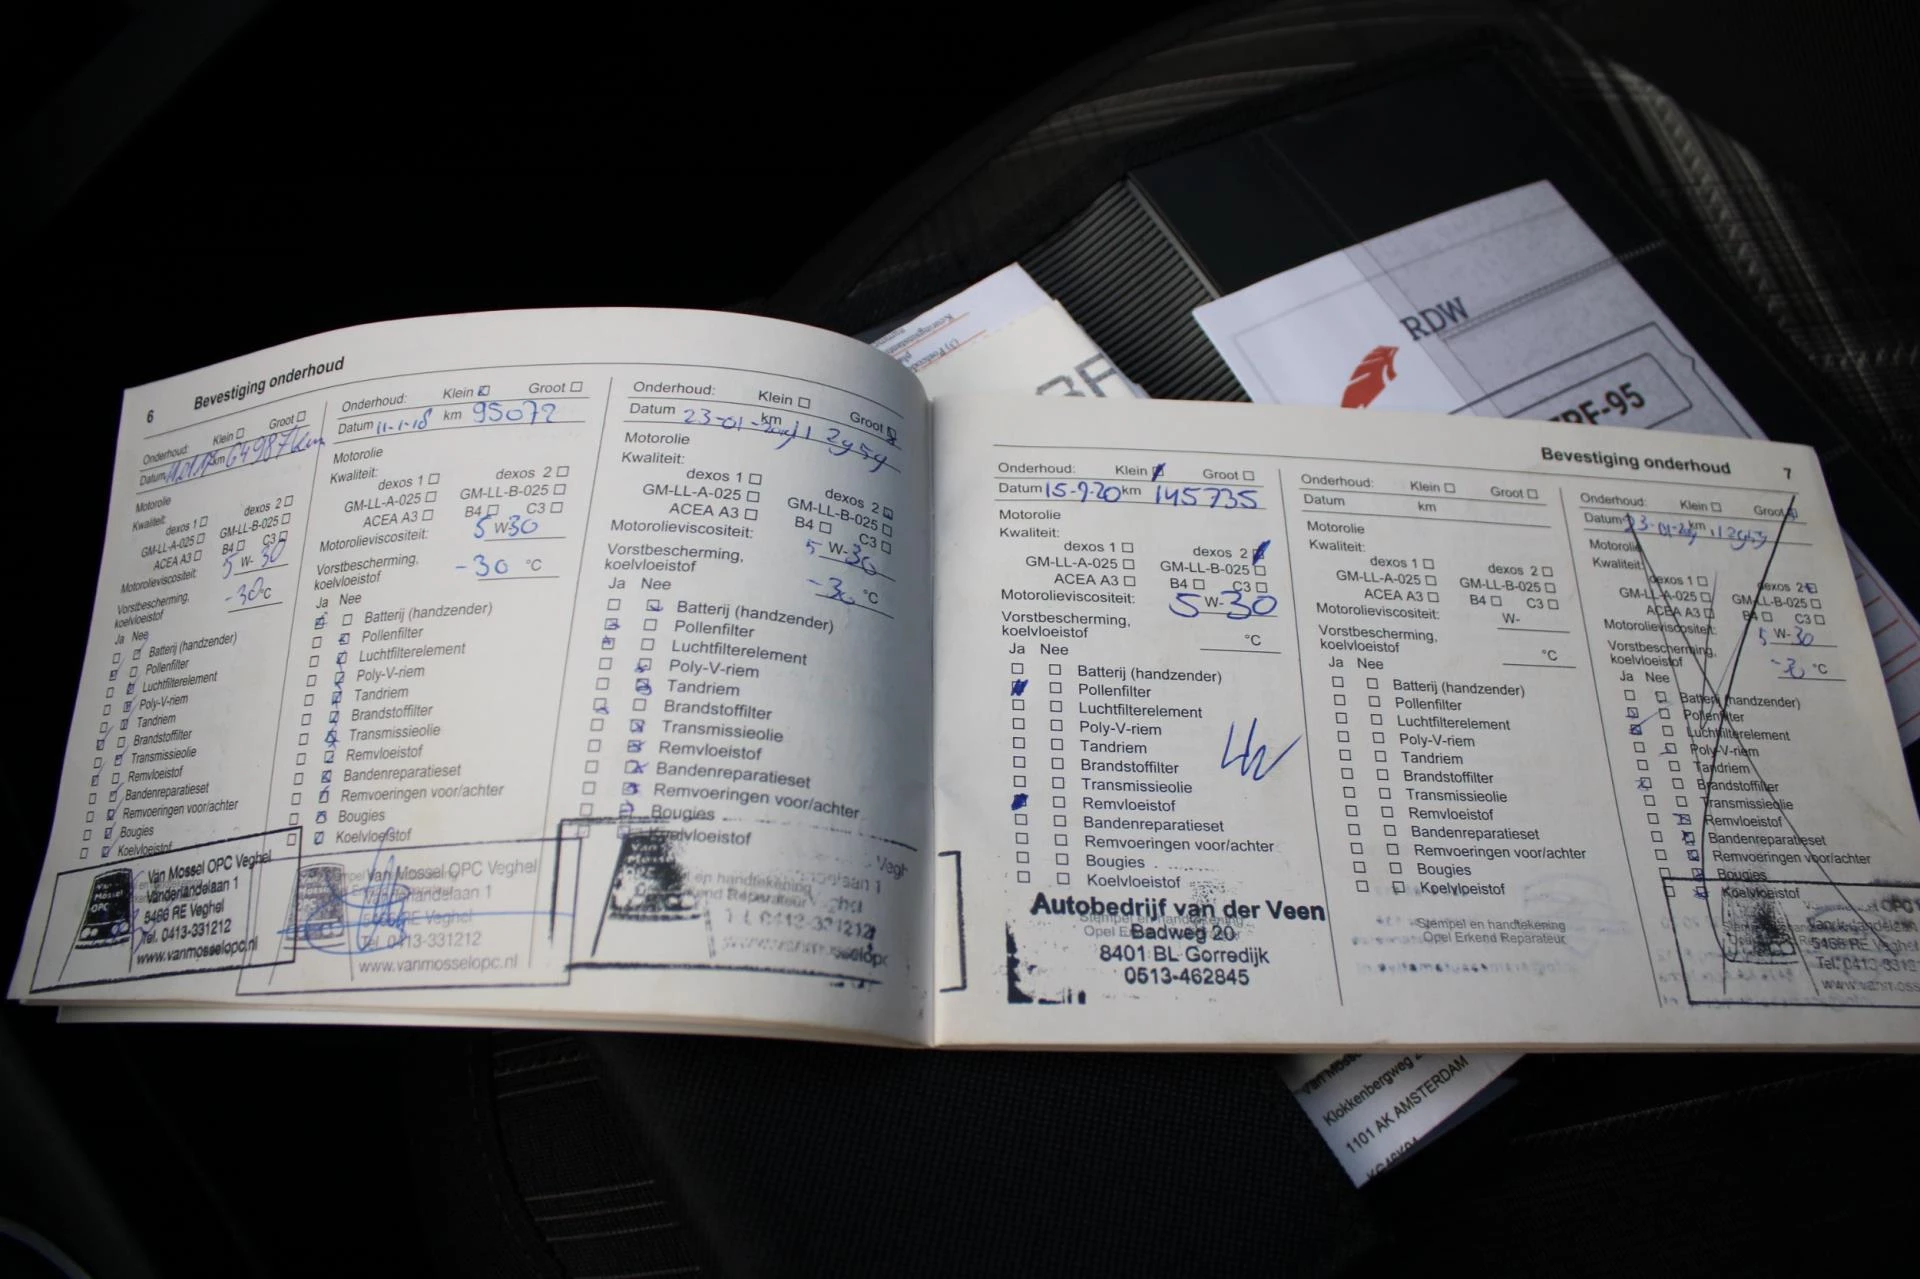 6 Bevestiging onderhoud
Onderhoud: Klein Groot
Datum km 64987 km
Motorolie
Kwaliteit:
dexos 1 dexos 2
GM-LL-A-025 GM-LL-B-025
ACEA A3 B4 C3
Motorolieviscositeit: 5 W-30
Vorstbescherming,
koelvloeistof -30 °C
Ja Nee
Batterij (handzender)
Pollenfilter
Luchtfilterelement
Poly-V-riem
Tandriem
Brandstoffilter
Transmissieolie
Remvloeistof
Bandenreparatieset
Remvoeringen voor/achter
Bougies
Koelvloeistof
Van Mossel OPC Veghel
Vanderlandelaan 1
5466 RE Veghel
Tel. 0413-331212
www.vanmosselopc.nl
Onderhoud: Klein Groot
Datum 11-1-18 km 95072
Motorolie
Kwaliteit:
dexos 1 dexos 2
GM-LL-A-025 GM-LL-B-025
ACEA A3 B4 C3
Motorolieviscositeit: 5 W-30
Vorstbescherming,
koelvloeistof -30 °C
Ja Nee
Batterij (handzender)
Pollenfilter
Luchtfilterelement
Poly-V-riem
Tandriem
Brandstoffilter
Transmissieolie
Remvloeistof
Bandenreparatieset
Remvoeringen voor/achter
Bougies
Koelvloeistof
Van Mossel OPC Veghel
Vanderlandelaan 1
5466 RE Veghel
Tel. 0413-331212
www.vanmosselopc.nl
Onderhoud: Klein Groot
Datum 23-01- km
Motorolie
Kwaliteit:
dexos 1 dexos 2
GM-LL-A-025 GM-LL-B-025
ACEA A3 B4 C3
Motorolieviscositeit: 5 W-30
Vorstbescherming,
koelvloeistof -30 °C
Ja Nee
Batterij (handzender)
Pollenfilter
Luchtfilterelement
Poly-V-riem
Tandriem
Brandstoffilter
Transmissieolie
Remvloeistof
Bandenreparatieset
Remvoeringen voor/achter
Bougies
Koelvloeistof
Bevestiging onderhoud 7
Onderhoud: Klein Groot
Datum 15-9-20 km 145735
Motorolie
Kwaliteit:
dexos 1 dexos 2
GM-LL-A-025 GM-LL-B-025
ACEA A3 B4 C3
Motorolieviscositeit: 5 W-30
Vorstbescherming,
koelvloeistof °C
Ja Nee
Batterij (handzender)
Pollenfilter
Luchtfilterelement
Poly-V-riem
Tandriem
Brandstoffilter
Transmissieolie
Remvloeistof
Bandenreparatieset
Remvoeringen voor/achter
Bougies
Koelvloeistof
Autobedrijf van der Veen
Badweg 20
8401 BL Gorredijk
0513-462845
Onderhoud: Klein Groot
Datum km
Motorolie
Kwaliteit:
dexos 1 dexos 2
GM-LL-A-025 GM-LL-B-025
ACEA A3 B4 C3
Motorolieviscositeit: W-
Vorstbescherming,
koelvloeistof °C
Ja Nee
Batterij (handzender)
Pollenfilter
Luchtfilterelement
Poly-V-riem
Tandriem
Brandstoffilter
Transmissieolie
Remvloeistof
Bandenreparatieset
Remvoeringen voor/achter
Bougies
Koelvloeistof
Stempel en handtekening
Opel Erkend Reparateur
Onderhoud: Klein Groot
Datum 23-01- km
Motorolie
Kwaliteit:
dexos 1 dexos 2
GM-LL-A-025 GM-LL-B-025
ACEA A3 B4 C3
Motorolieviscositeit: 5 W-30
Vorstbescherming,
koelvloeistof -30 °C
Ja Nee
Batterij (handzender)
Pollenfilter
Luchtfilterelement
Poly-V-riem
Tandriem
Brandstoffilter
Transmissieolie
Remvloeistof
Bandenreparatieset
Remvoeringen voor/achter
Bougies
Koelvloeistof
RDW
Klokkenbergweg
1101 AK AMSTERDAM